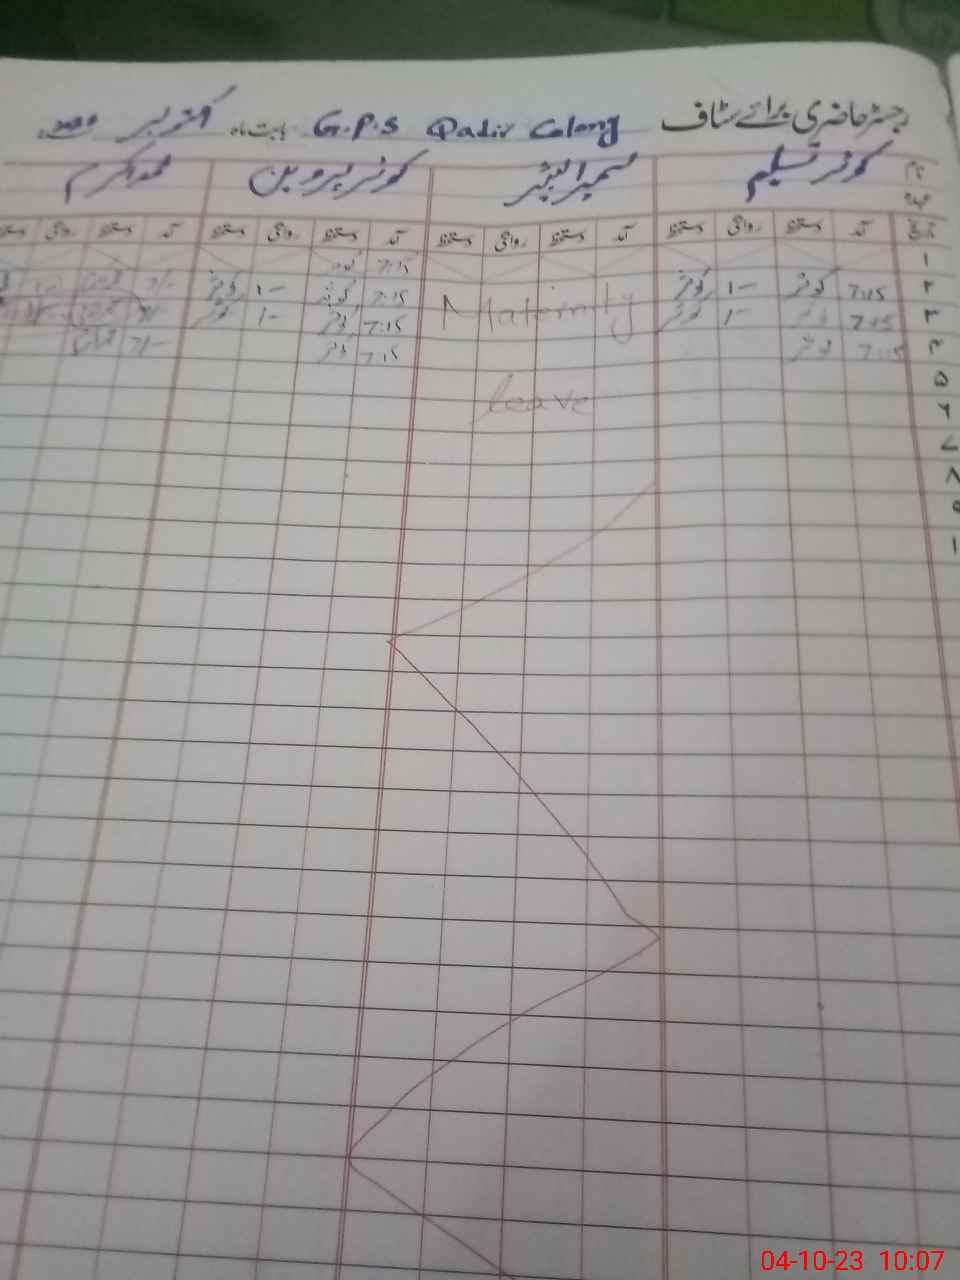 رجسٹر حاضری برائے سٹاف G.P.S Qadir Colony بابت ماہ اکتوبر
نام کوثر تسلیم کوثر پروین محمد اکرم
عہدہ
تاریخ آمد دستخط روانگی دستخط آمد دستخط روانگی دستخط آمد دستخط روانگی دستخط آمد دستخط روانگی
۱ 7:15
۲ 7:15 کوثر 1- کوثر Maternity 7:15 کوثر 1- کوثر 7/-
۳ 7:15 1- کوثر 7:15 کوثر 1- کوثر
۴ 7:15 کوثر 7:15 کوثر 7/-
۵ leave
۶
۷
۸
۹
۱
04-10-23 10:07